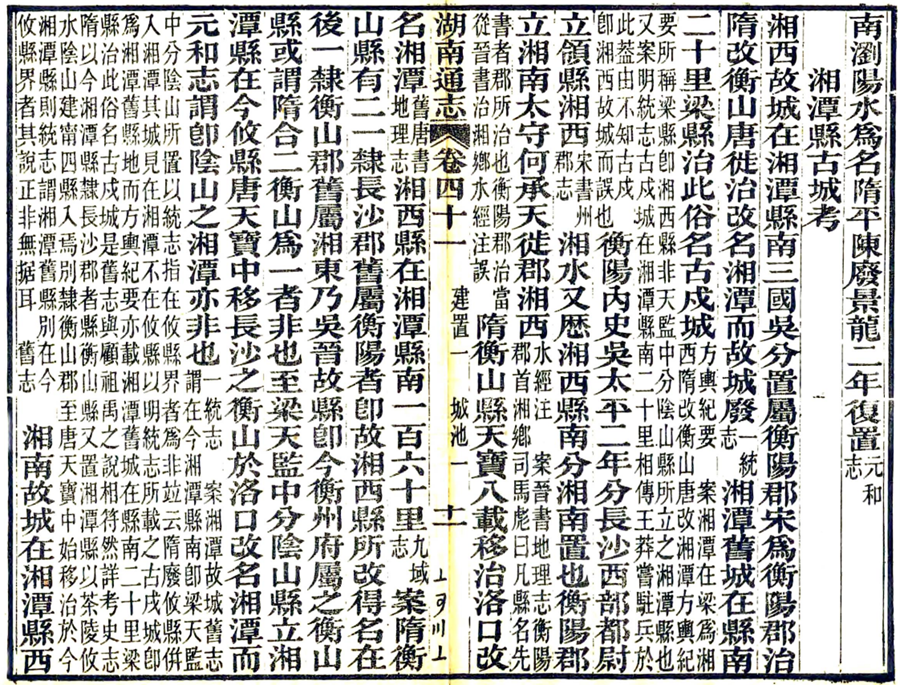 南瀏陽水為名隋平陳廢景龍二年復置元和志
湘潭縣古城考
湘西故城在湘潭縣南三國吳分置屬衡陽郡宋為衡陽郡治
隋改衡山唐徙治改名湘潭而故城廢一統志 湘潭舊城在縣南
二十里梁縣治此俗名古戍城方輿紀要 案湘潭在梁為湘西隋改衡山唐改湘潭方輿紀
要所稱梁縣卽湘西縣非天監中分陰山縣所立之湘潭縣也
又案明統志古戍城在湘潭縣南二十里相傳王莽嘗駐兵於
此蓋由不知古戍卽湘西故城而誤也 衡陽內史吳太平二年分長沙西部都尉
立領縣湘西宋書州郡志 湘水又歷湘西縣南分湘南置也衡陽郡
立湘南太守何承天徙郡湘西水經注 案晉書地理志衡陽郡首湘鄉司馬彪曰凡縣名先
書者郡所治也衡陽郡治當從晉書治湘鄉水經注誤 隋衡山縣天寶八載移治洛口改
湖南通志 卷四十一 建置一 城池一 十一
名湘潭舊唐書地理志 湘西縣在湘潭縣南一百六十里九域志 案隋衡
山縣有二一隸長沙郡舊屬衡陽者卽故湘西縣所改得名在
後一隸衡山郡舊屬湘東乃吳晉故縣卽今衡州府屬之衡山
縣或謂隋合二衡山為一者非也至梁天監中分陰山縣立湘
潭縣在今攸縣唐天寶中移長沙之衡山於洛口改名湘潭而
元和志謂卽陰山之湘潭亦非也一統志 案湘潭故城舊志謂在今湘潭縣南卽梁天監
中分陰山所置以統志指在攸縣界者為非並云隋廢攸縣併
入湘潭其城見在湘潭不在攸縣以明統志所載之古戍城卽
為湘潭舊縣地而方輿紀要亦載湘潭舊城在縣南二十里梁
縣治此俗名古戍城是舊志與顧祖禹之說相符然詳考史志
隋以今湘潭縣隸長沙郡者縣衡山縣又置湘潭縣以茶陵攸
水陰山建甯四縣入焉別隸衡山郡至唐天寶中始移治於今
湘潭縣則統志謂湘潭舊縣別在今攸縣界者其說正非無據耳 舊志 湘南故城在湘潭縣西